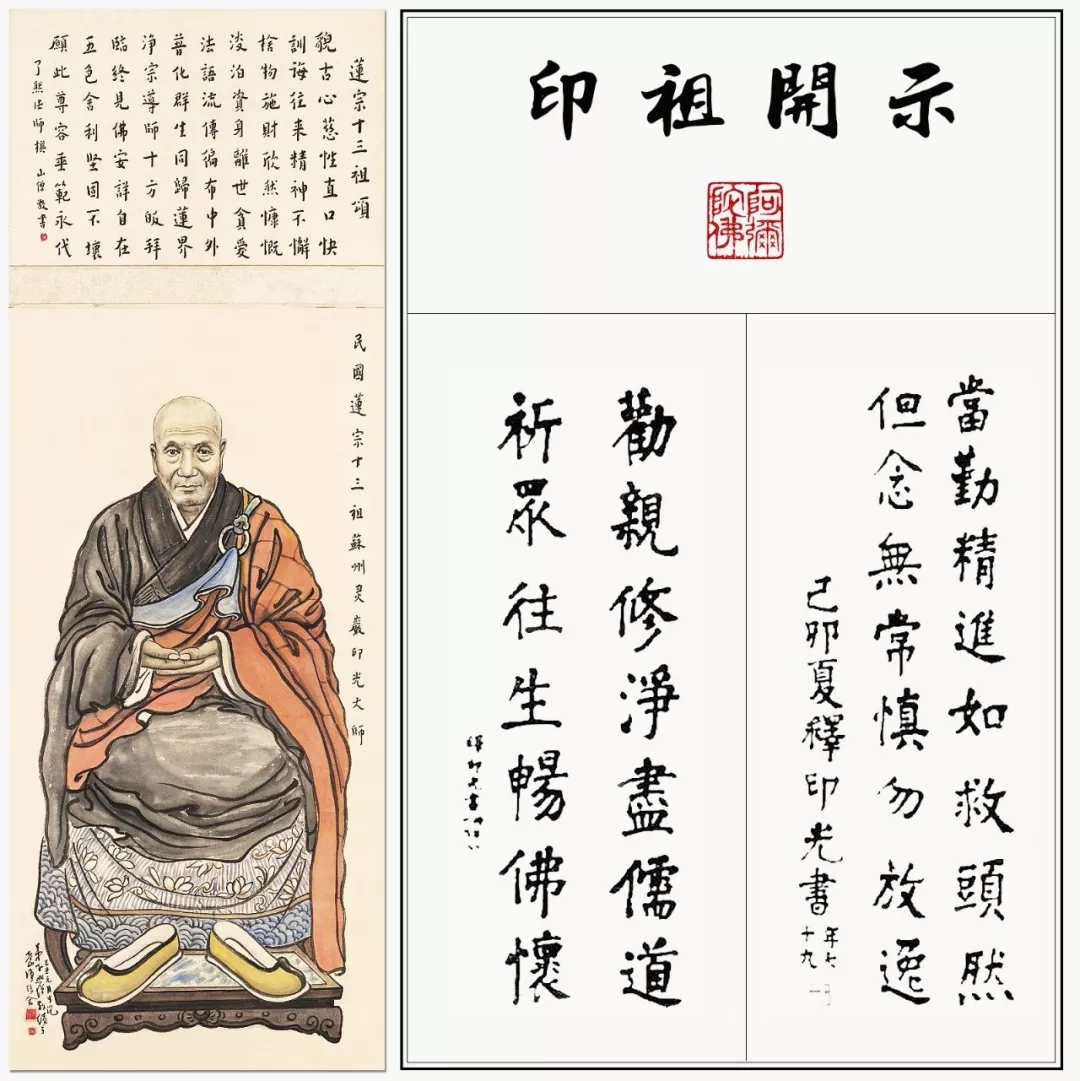 蓮宗十三祖頌
貌古心慈性直口快
訓誨往来精神不懈
捨物施財欣然慷慨
淡泊資身離世貪愛
法語流傳徧布中外
普化群生同歸蓮界
净宗導師十方皈拜
臨終見佛安詳自在
五色舍利坚固不壞
願此尊容垂範永代
了然法師撰 山僧敬書
民國蓮宗十三祖蘇州灵巖印光大師
印祖開示
阿彌陀佛
當勤精進如救頭然
但念無常慎勿放逸
己卯夏釋印光書
年七十九
勸親修淨盡儒道
祈眾往生暢佛懷
釋印光書